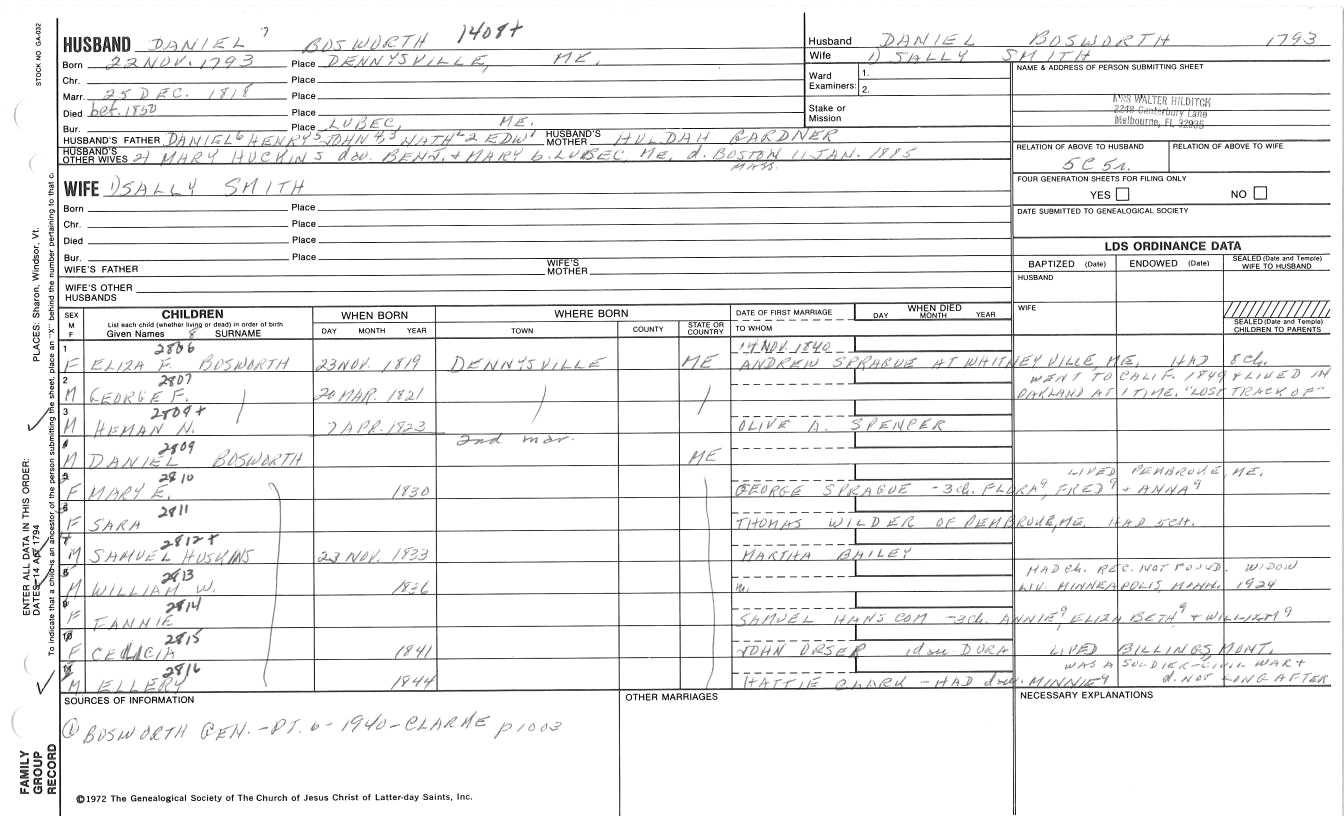 STOCK NO. GA-032
PLACES: Sharon, Windsor, Vt.
ENTER ALL DATA IN THIS ORDER:
DATES: 14 Apr 1794
To indicate that a child is an ancestor of the person submitting the sheet, place an "X" behind the number pertaining to that c
FAMILY GROUP RECORD
HUSBAND DANIEL 7 BOSWORTH 1408+
Born 22 NOV. 1793 Place DENNYSVILLE, ME.
Chr. Place
Marr. 25 DEC. 1818 Place
Died bef. 1850 Place
Bur. Place LUBEC, ME.
HUSBAND'S FATHER DANIEL6 HENRY5 JOHN4,3 NATH'L2 EDW1 HUSBAND'S MOTHER HULDAH GARDNER
HUSBAND'S OTHER WIVES 2) MARY HUCKINS dau. BENJ. + MARY b. LUBEC, ME, d. BOSTON 11 JAN. 1885
MASS.
WIFE 1) SALLY SMITH
Born Place
Chr. Place
Died Place
Bur. Place
WIFE'S FATHER WIFE'S MOTHER
WIFE'S OTHER HUSBANDS
Husband DANIEL BOSWORTH 1793
Wife 1) SALLY SMITH
Ward Examiners: 1.
2.
Stake or Mission
NAME & ADDRESS OF PERSON SUBMITTING SHEET
MRS WALTER HILDITCH
2248 Canterbury Lane
Melbourne, FL 32935
RELATION OF ABOVE TO HUSBAND RELATION OF ABOVE TO WIFE
5C 5r.
FOUR GENERATION SHEETS FOR FILING ONLY
YES NO
DATE SUBMITTED TO GENEALOGICAL SOCIETY
LDS ORDINANCE DATA
BAPTIZED (Date) ENDOWED (Date) SEALED (Date and Temple) WIFE TO HUSBAND
HUSBAND
WIFE
SEALED (Date and Temple) CHILDREN TO PARENTS
SEX M F CHILDREN
List each child (whether living or dead) in order of birth
Given Names 8 SURNAME
WHEN BORN DAY MONTH YEAR
WHERE BORN TOWN COUNTY STATE OR COUNTRY
DATE OF FIRST MARRIAGE TO WHOM
WHEN DIED DAY MONTH YEAR
1 2806 14 NOV. 1840
F ELIZA F. BOSWORTH 23 NOV. 1819 DENNYSVILLE ME ANDREW SPRAGUE AT WHITNEYVILLE, ME. HAD 8 ch.
2 2807 WENT TO CALIF. 1849 & LIVED IN
M GEORGE F. 20 MAR. 1821 OAKLAND AT 1 TIME. "LOST TRACK OF"
3 2808+
M HEMAN N. 7 APR. 1823 OLIVE A. SPENCER
4 2809 2nd mar.
M DANIEL BOSWORTH ME
5 2810 LIVED PEMBROKE, ME.
F MARY E. 1830 GEORGE SPRAGUE - 3 ch. FLORA9, FRED9 + ANNA9
6 2811
F SARA THOMAS WILDER OF PEMBROKE, ME. HAD 5 CH.
7 2812+
M SAMUEL HUSKINS 23 NOV. 1833 MARTHA BAILEY
8 2813 HAD CH. REC. NOT FOUND. WIDOW
M WILLIAM W. 1836 m. LIV. MINNEAPOLIS, MINN. 1924
9 2814
F FANNIE SAMUEL HANSCOM - 3 ch. ANNIE9, ELIZABETH9 + WILLIAM9
10 2815
F CELICIA 1841 JOHN ORSER 1 dau DORA LIVED BILLINGS, MONT.
2816 WAS A SOLDIER - CIVIL WAR +
M ELLERY 1844 HATTIE CLARK - HAD dau. MINNIE9 d. NOT LONG AFTER
SOURCES OF INFORMATION
OTHER MARRIAGES
NECESSARY EXPLANATIONS
1) BOSWORTH GEN. - PT. 6 - 1940 - CLARKE p 1003
©1972 The Genealogical Society of The Church of Jesus Christ of Latter-day Saints, Inc.